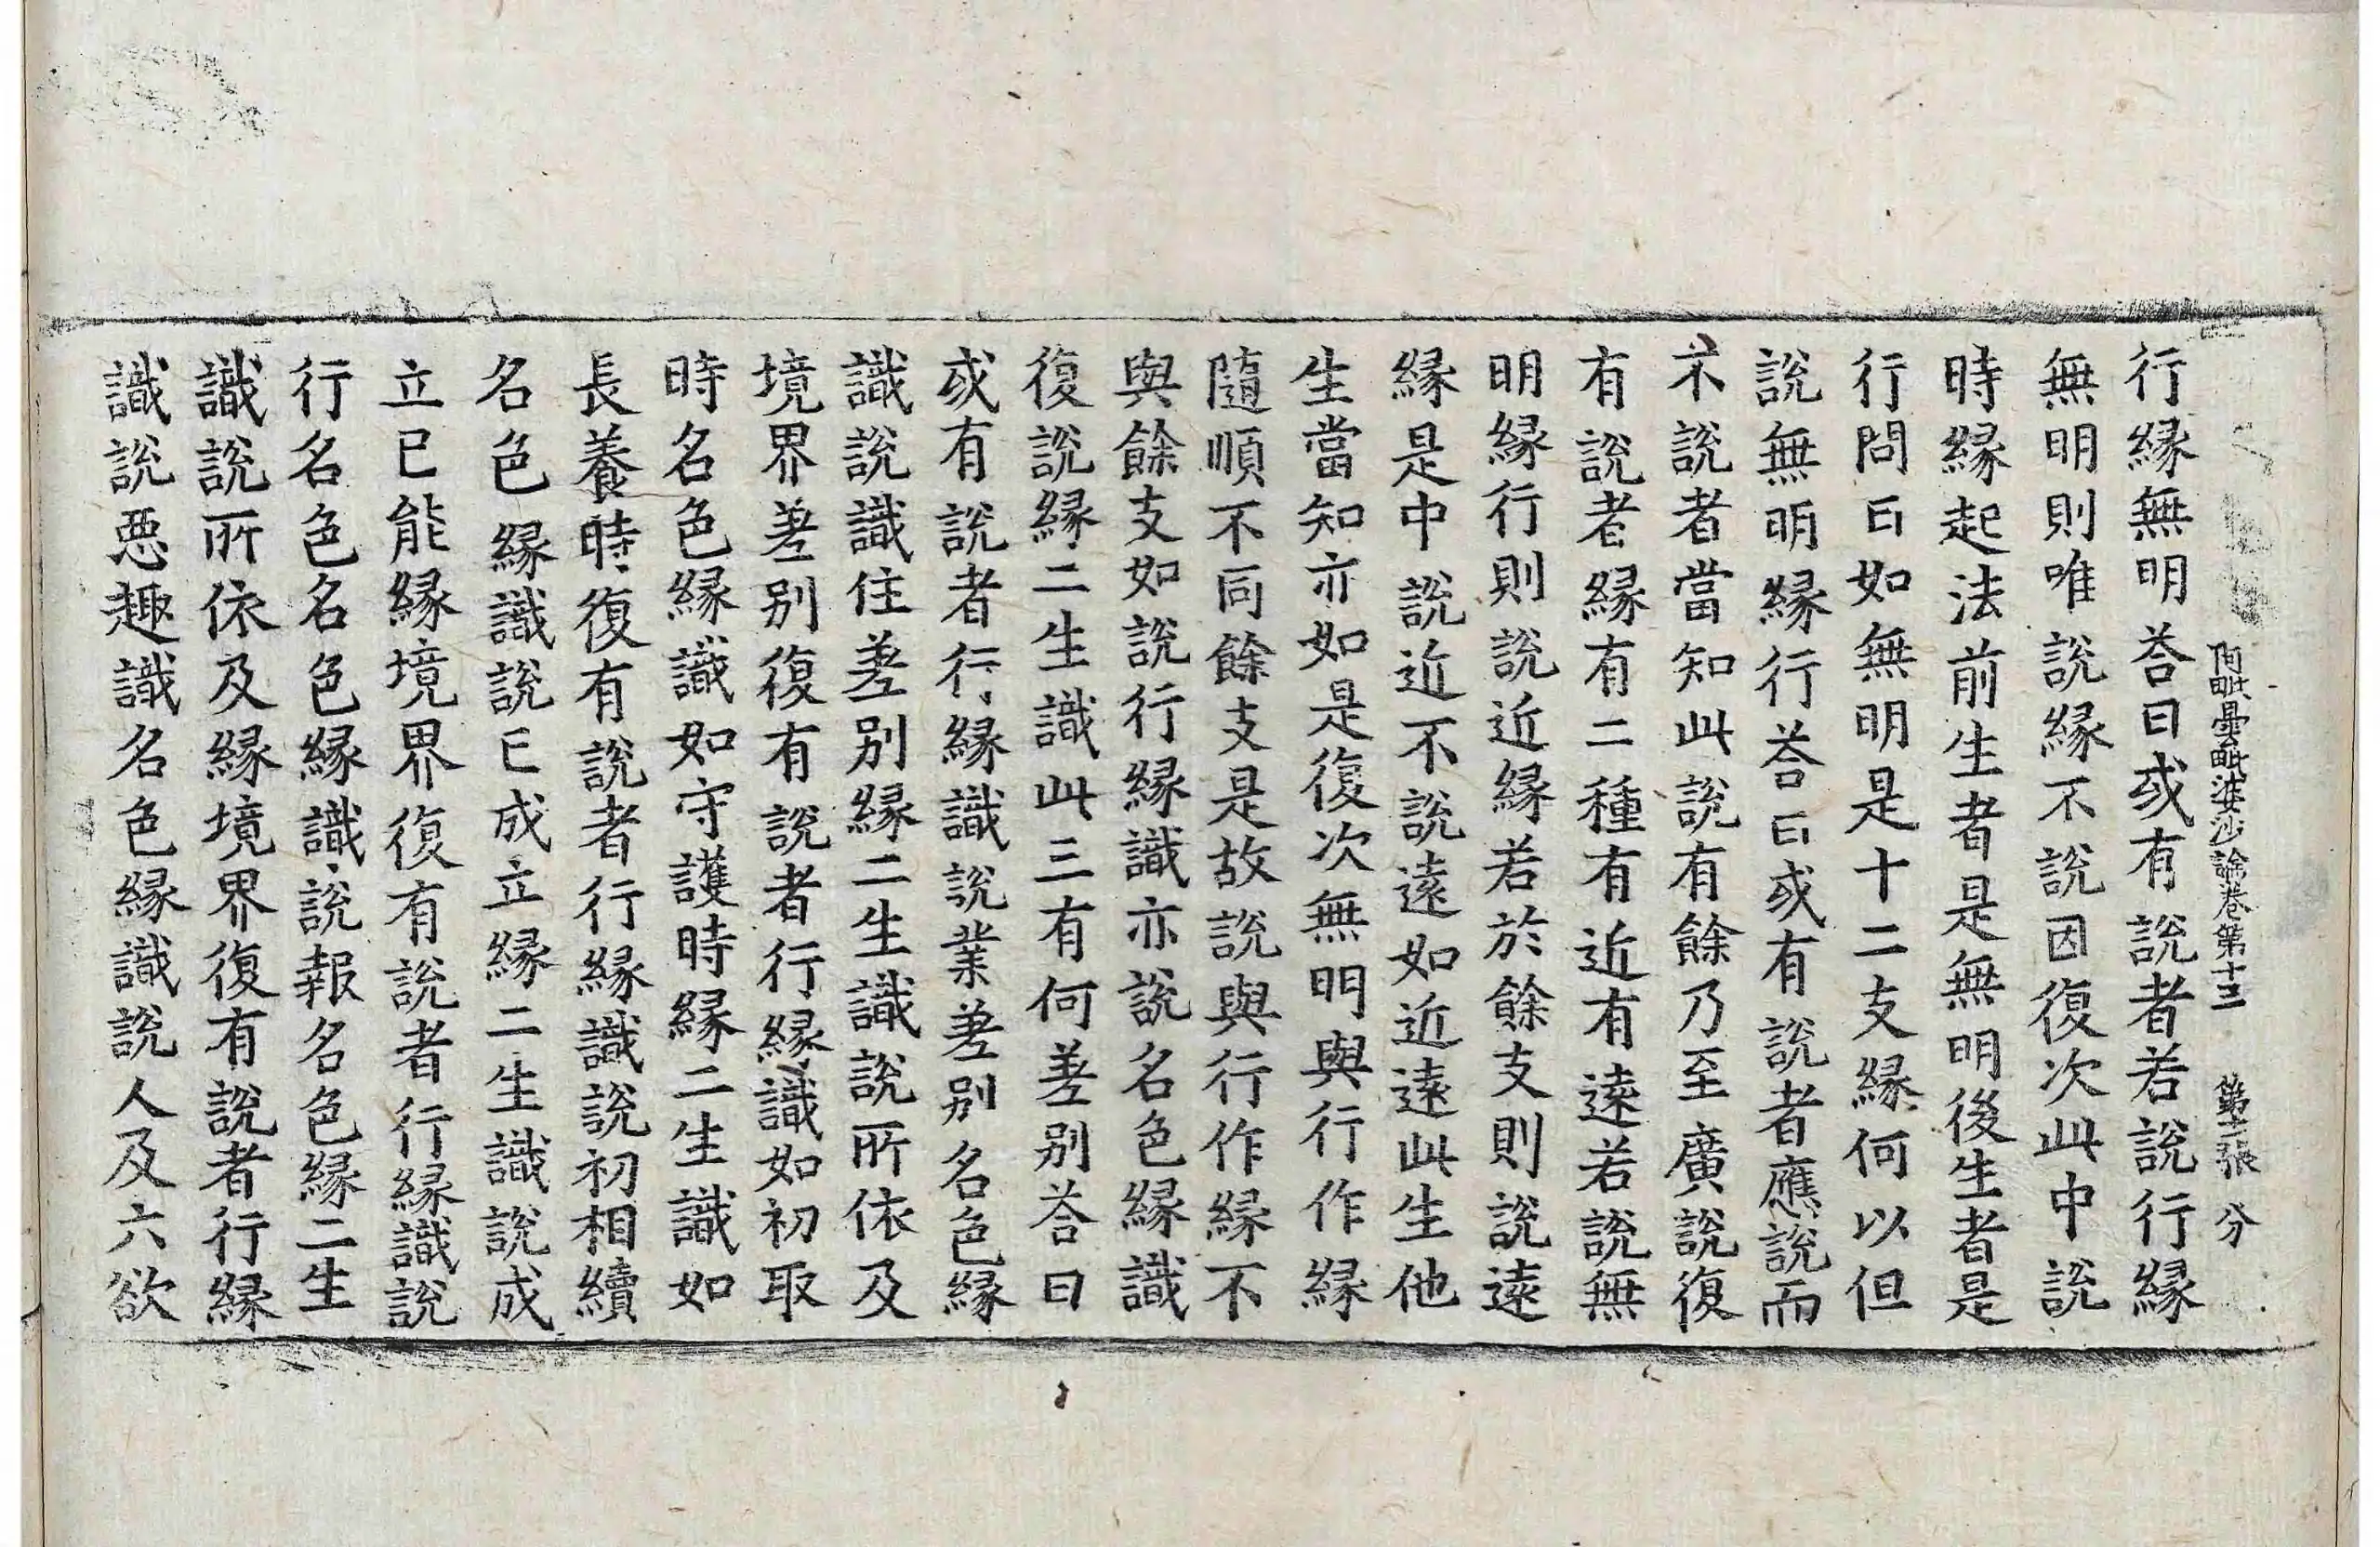 阿毗曇毗婆沙論卷第十三 第十二張 分
行緣無明荅曰或有說者若說行緣
無明則唯說緣不說因復次此中說
時緣起法前生者是無明後生者是
行問曰如無明是十二支緣何以但
說無明緣行荅曰或有說者應說而
不說者當知此說有餘乃至廣說復
有說者緣有二種有近有遠若說無
明緣行則說近緣若於餘支則說遠
緣是中說近不說遠如近遠此生他
生當知亦如是復次無明與行作緣
隨順不同餘支是故說與行作緣不
與餘支如說行緣識亦說名色緣識
復說緣二生識此三有何差別荅曰
或有說者行緣識說業差別名色緣
識說識住差別緣二生識說所依及
境界差別復有說者行緣識如初取
時名色緣識如守護時緣二生識如
長養時復有說者行緣識說初相續
名色緣識說已成立緣二生識說成
立已能緣境界復有說者行緣識說
行名色名色緣識說報名色緣二生
識說所依及緣境界復有說者行緣
識說惡趣識名色緣識說人及六欲